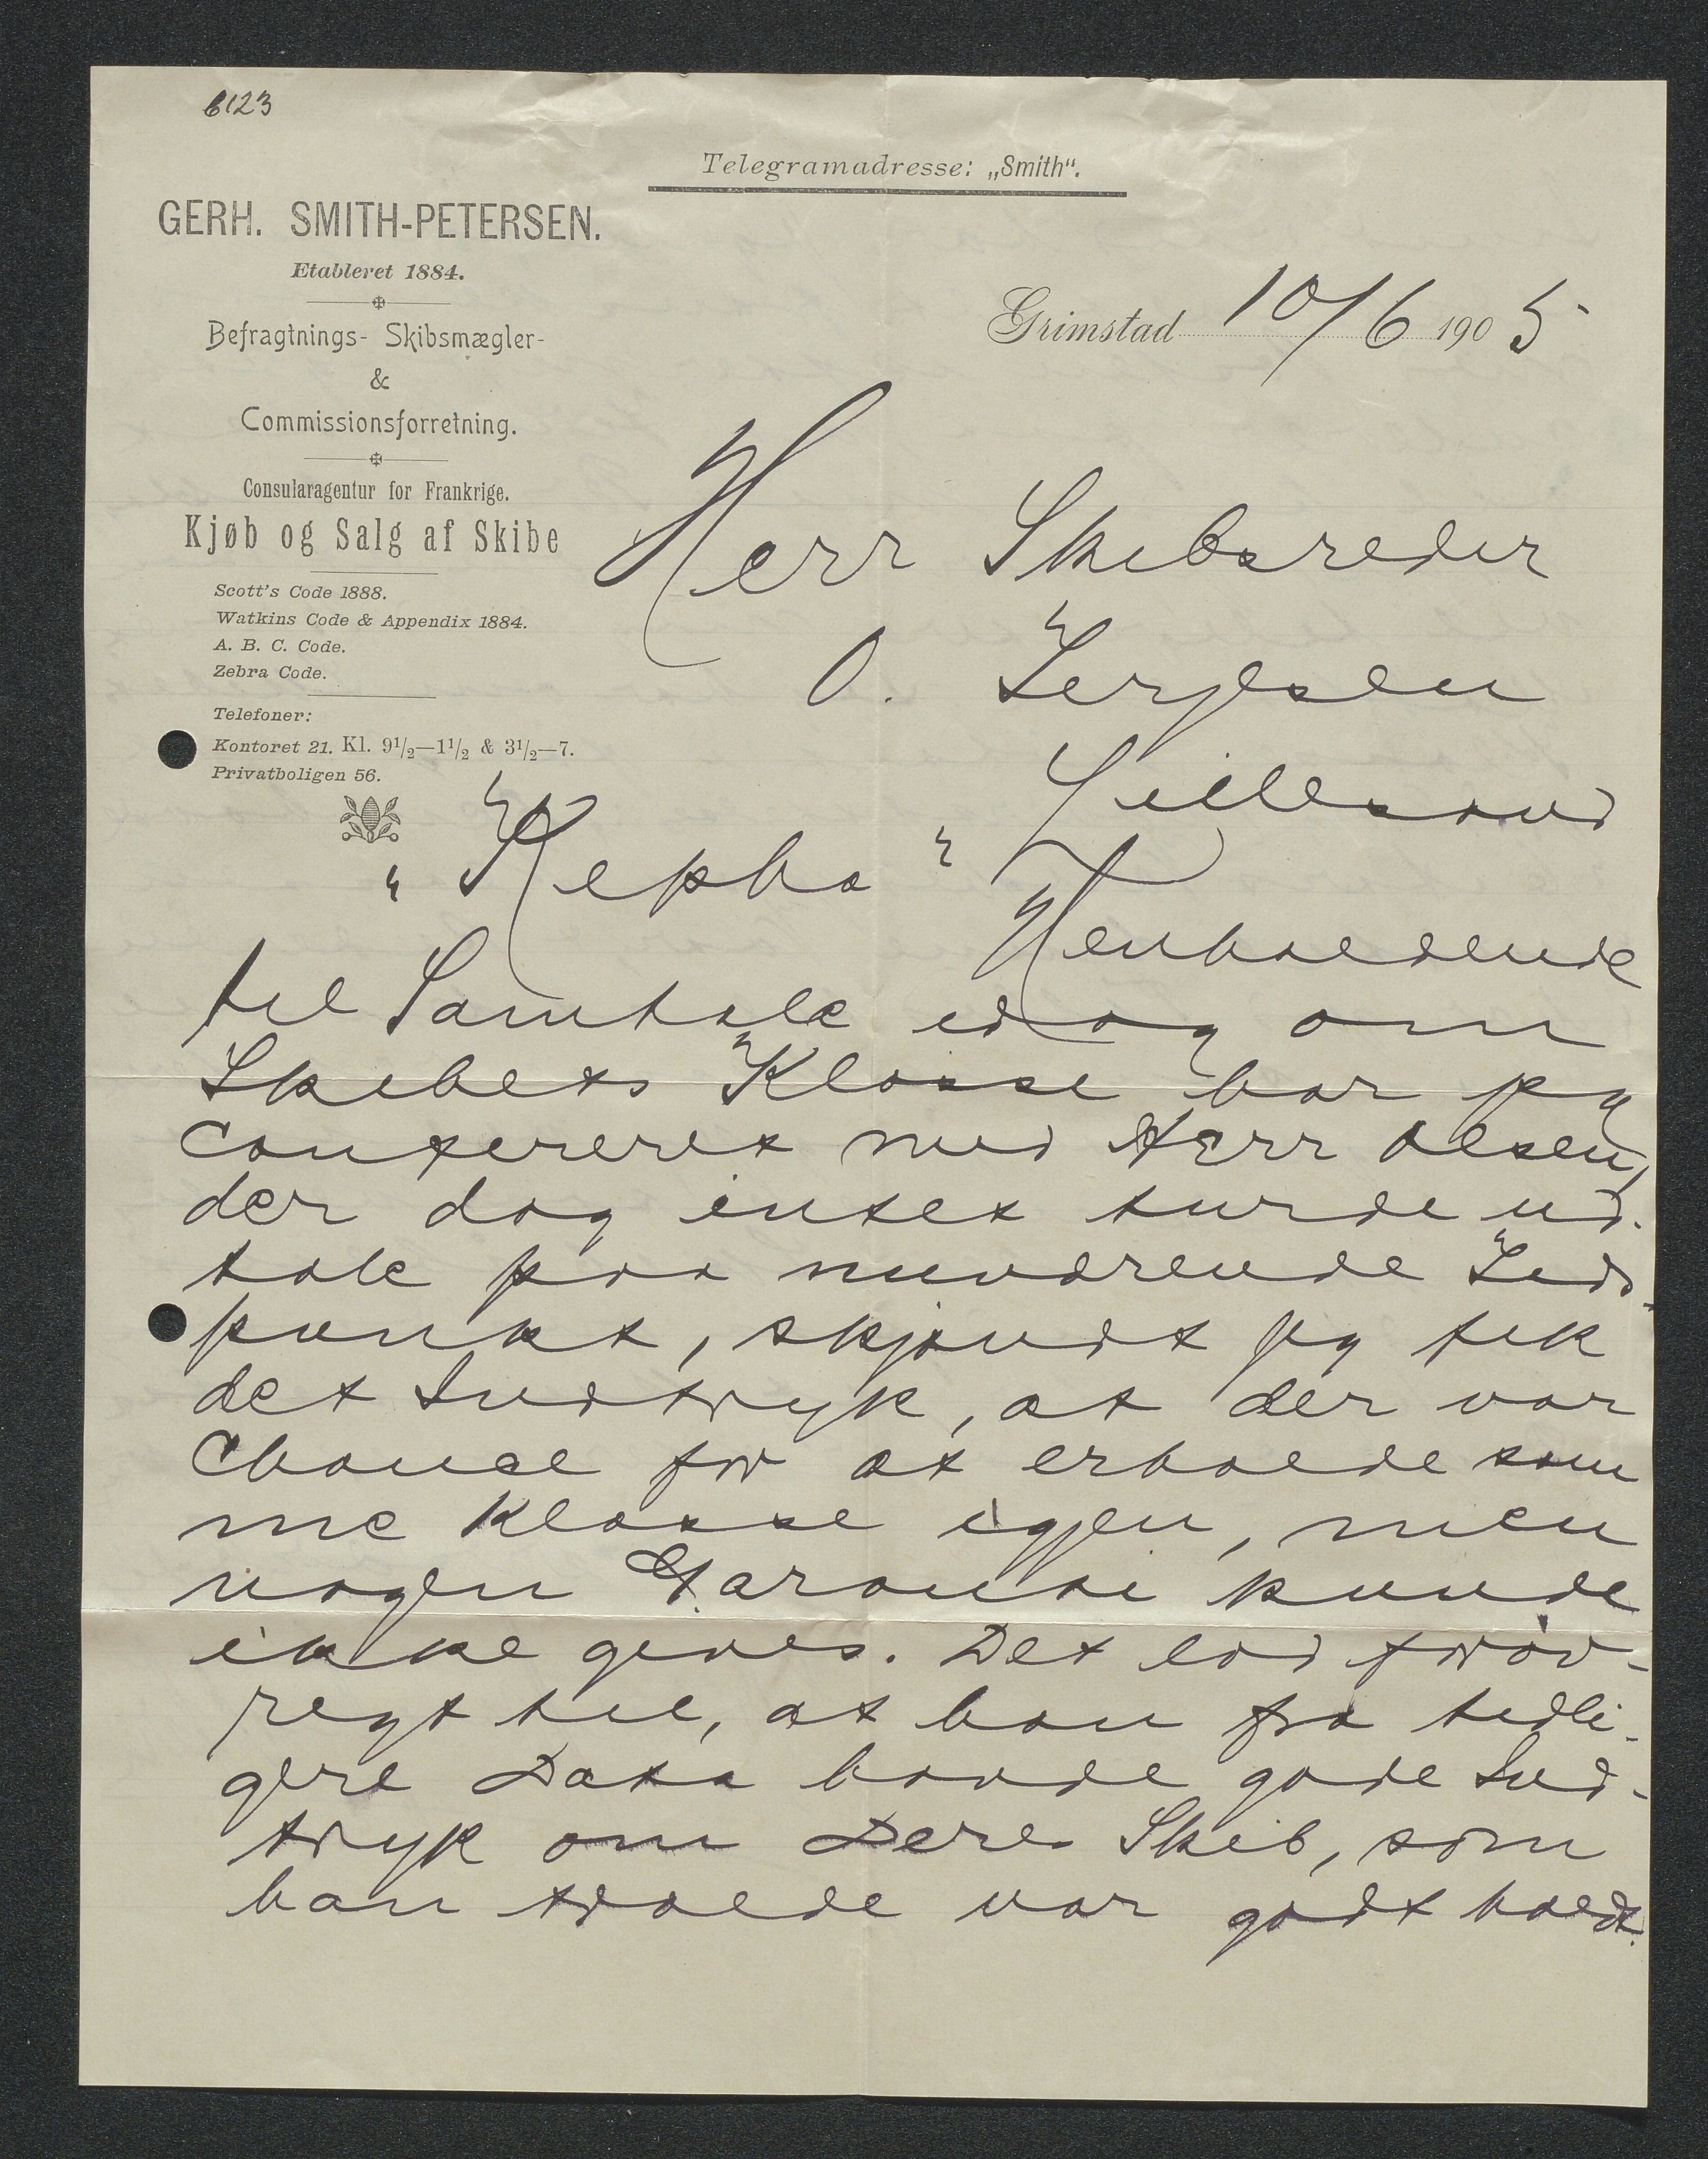 6123
Telegramadresse: „Smith“.
GERH. SMITH-PETERSEN.
Etableret 1884.
Befragtnings- Skibsmægler-
&
Commissionsforretning.
Consularagentur for Frankrige.
Kjøb og Salg af Skibe
Scott's Code 1888.
Watkins Code & Appendix 1884.
A. B. C. Code.
Zebra Code.
Telefoner:
Kontoret 21. Kl. 9½—1½ & 3½—7.
Privatboligen 56.
Grimstad 10/6 1905
Herr Skibsreder
O. Terjesen
Lillesand
"Hepha"
Henholdende
til Samtale idag om
Skibets Klasse har jeg
confereret med Herr Olsen,
der dog intet turde ud-
tale paa nuværende Tids-
punkt, skjøndt jeg fik
det Indtryk, at der var
Chance for at erholde sam
me Klasse igjen, men
nogen Garanti kunde
ikke gives. Det lod forøv-
rigt til, at han fra tidli-
gere Data havde gode Ind-
tryk om Deres Skib, som
han troede var godt holdt.